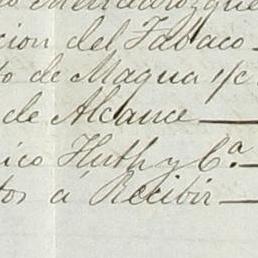 o Mendarozque
cion del Tabaco
to de Magua y/c
de Alcance
ico Huth y Cª.
tos á Recibir